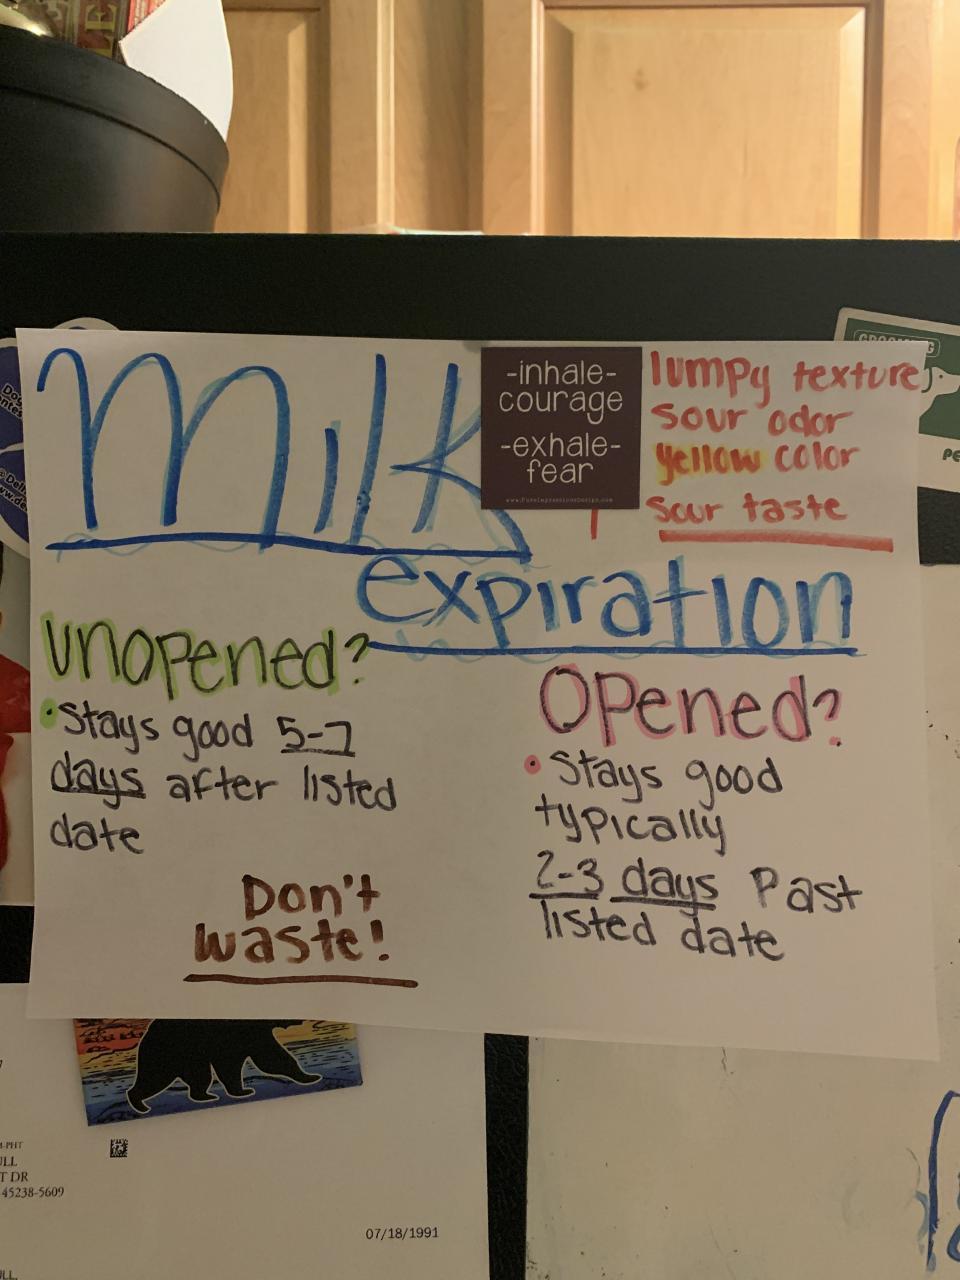 Milk
-inhale-
courage
-exhale-
fear
www.PureImpressionsDesign.com
lumpy texture
sour odor
yellow color
sour taste
expiration
unopened?
• Stays good 5-7
days after listed
date
Don't
waste!
Opened?
• Stays good
typically
2-3 days Past
listed date
GROOMING
PE
45238-5609
T DR
07/18/1991